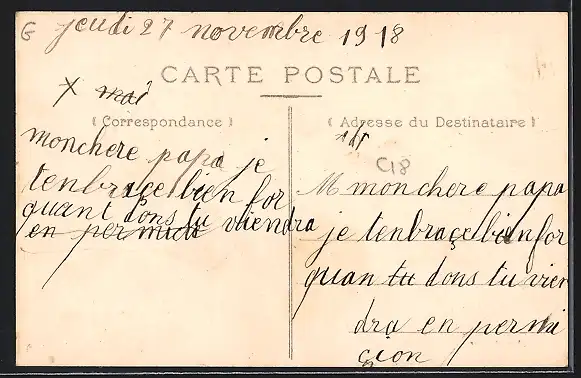 G jeudi 27 novembre 1918
CARTE POSTALE
x mai
(Correspondance)
monchere papa je
tenbrace bien for
quant dons tu viendra
en permici
(Adresse du Destinataire)
C18
M monchere papa
je tenbraçe bien for
quan tu dons tu vien
dra en permi
çion